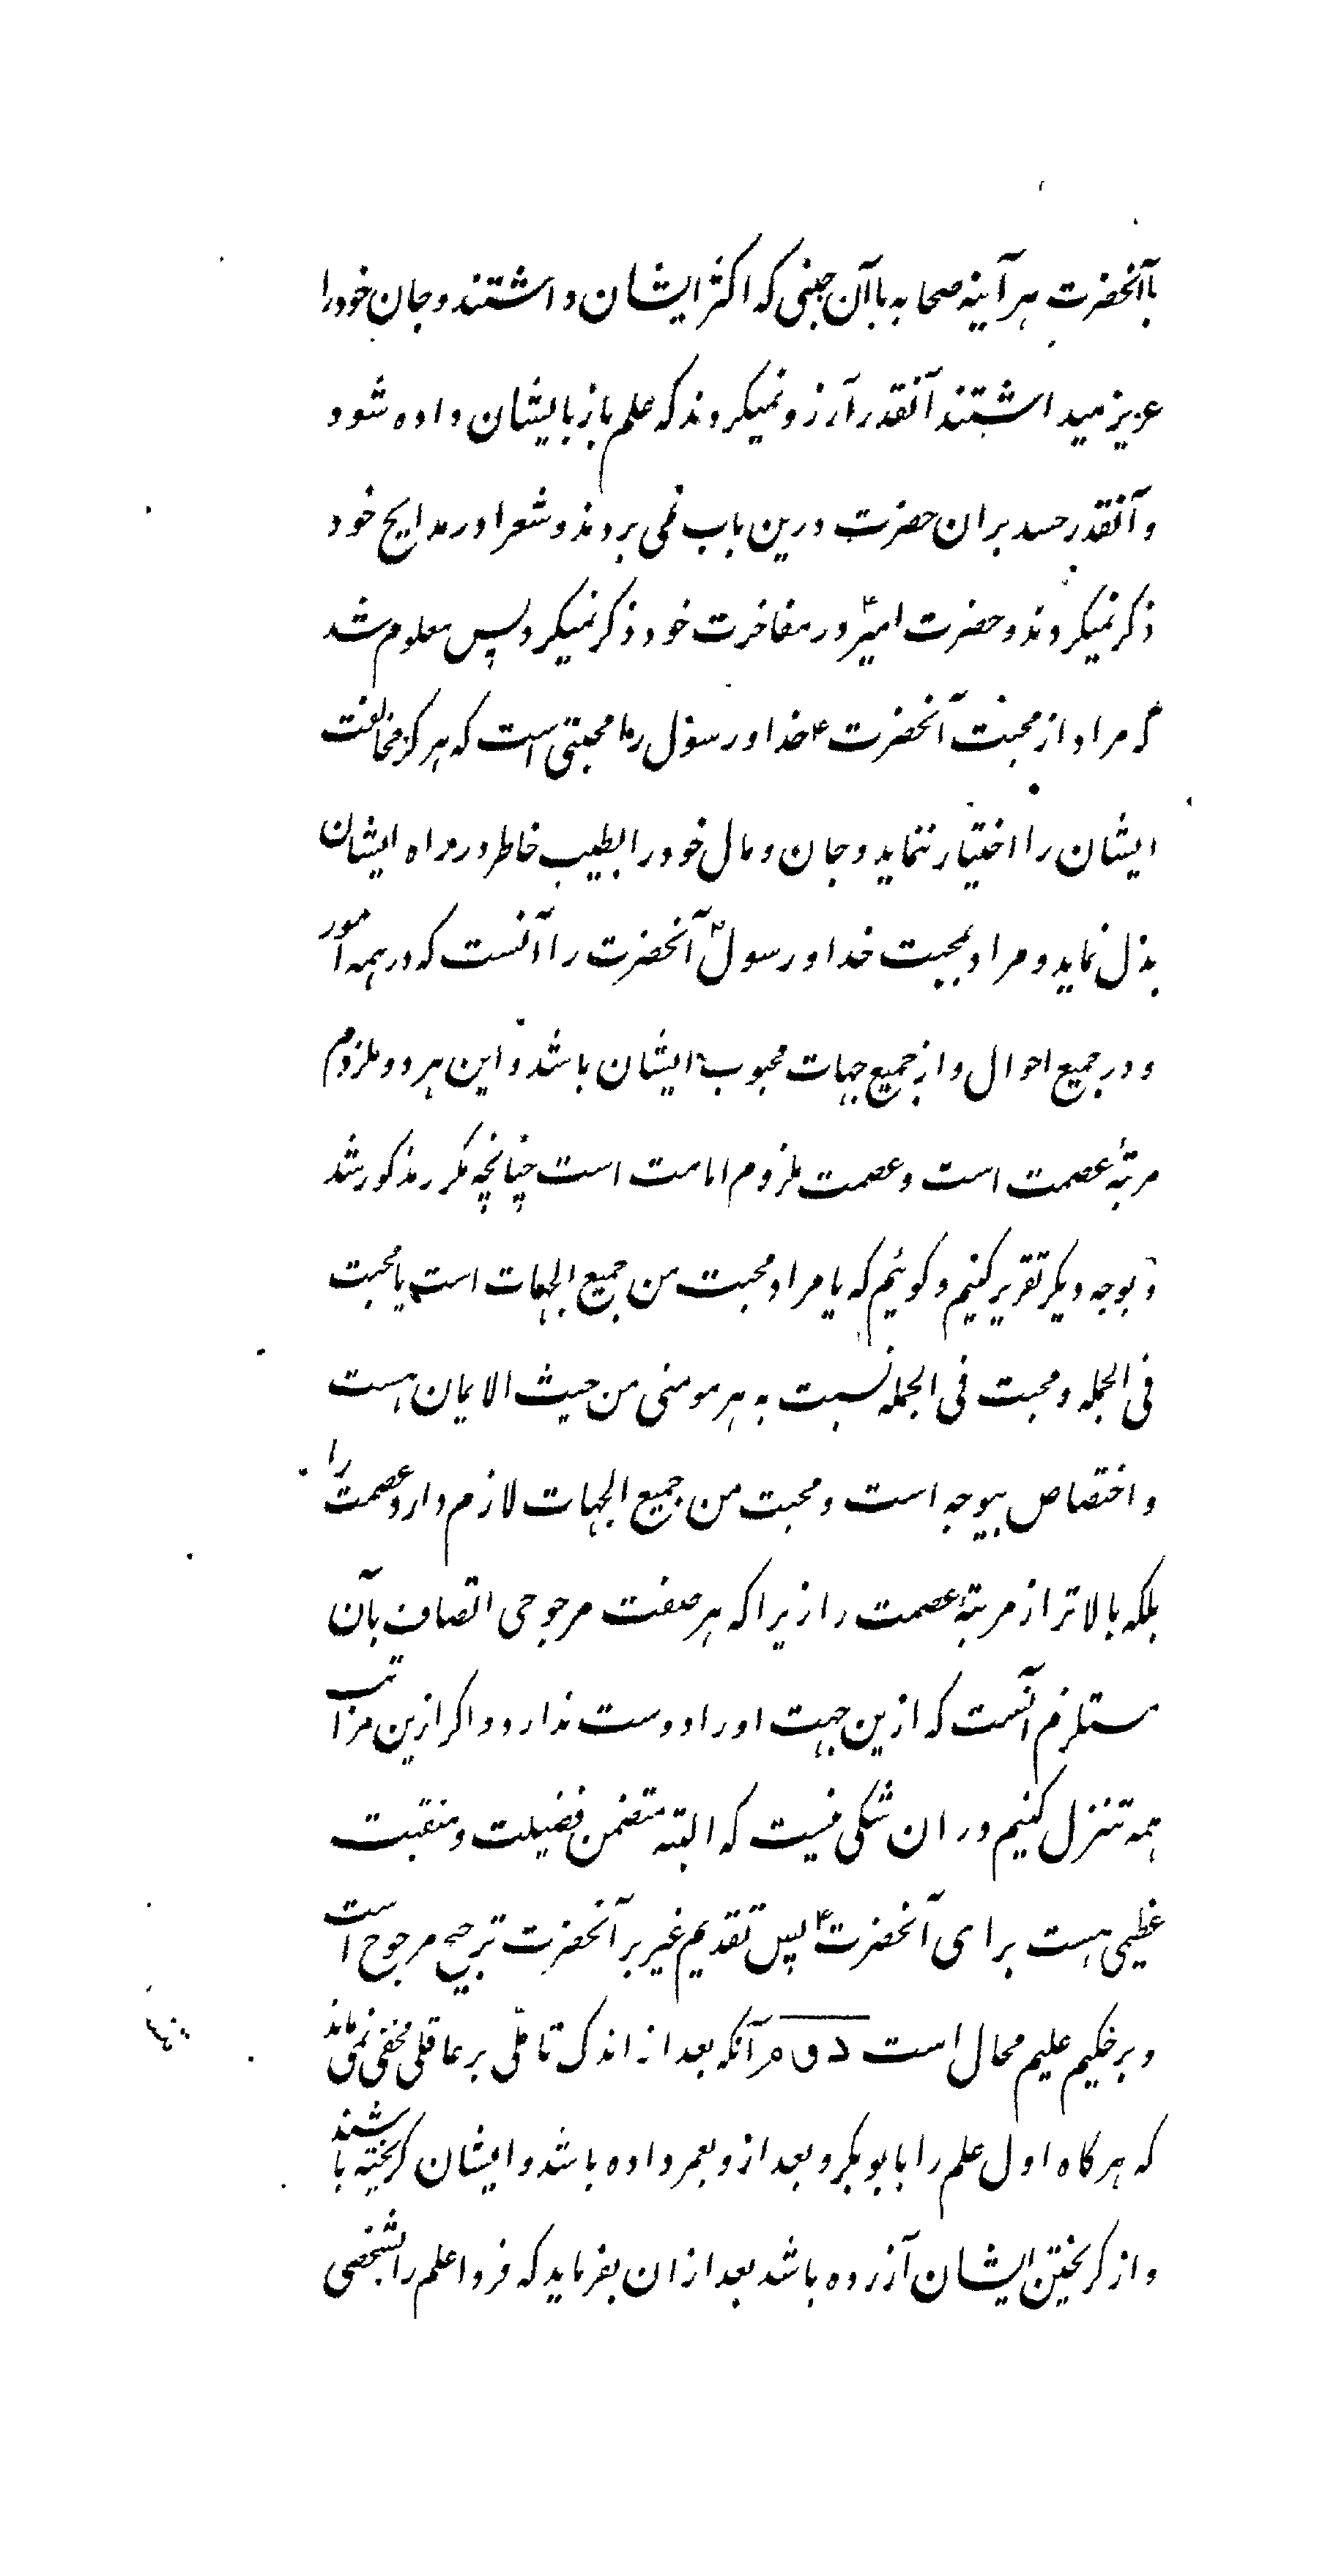 بآنحضرت هر آینه صحابه باآن جبنی که اکثر ایشان داشتند و جان خود را
عزیز میداشتند آنقدر آرزو نمیکردند که علم باز بایشان داده شود
و آنقدر حسد بران حضرت درین باب نمی بردند و شعرا در مدایح خود
ذکر نمیکردند و حضرت امیر۴ در مفاخرت خود ذکر نمیکرد پس معلوم شد
که مراد از محبت آنحضرت ۴ خدا و رسول را محبتی است که هرگز مخالفت
ایشان را اختیار ننماید و جان و مال خود را بطیب خاطر در راه ایشان
بذل نماید و مراد بمحبت خدا و رسول آنحضرت را آنست که در همه امور
و در جمیع احوال و از جمیع جهات محبوب ایشان باشد و این هر دو ملزوم
مرتبهٔ عصمت است و عصمت ملزوم امامت است چنانچه مکرر مذکور شد
و بوجه دیکر تقریر کنیم و کوئیم که یا مراد محبت من جمیع الجهات است یا محبت
فی الجمله و محبت فی الجمله نسبت به هر مومنی من حیث الایمان هست
و اختصاص بیوجه است و محبت من جمیع الجهات لازم دارد عصمت را
بلکه بالاتر از مرتبهٔ عصمت را زیرا که هر صفت مرجوحی اتصاف بآن
مستلزم آنست که ازین جهت اورا دوست ندارد و اکر ازین مراتب
همه تنزل کنیم در ان شکی نیست که البته متضمن فضیلت و منقبت
عظیمی هست برای آنحضرت۴ پس تقدیم غیر بر آنحضرت ترجیح مرجوح است
و بر حکیم علیم محال است دوم آنکه بعد از اندک تاملی بر عاقلی مخفی نمی ماند
که هر کاه اول علم را بابوبکر و بعد ازو بعمر داده باشد و ایشان کریخته باشند
و از کریختن ایشان آزرده باشد بعد ازان بفرماید که فردا علم را بشخصی